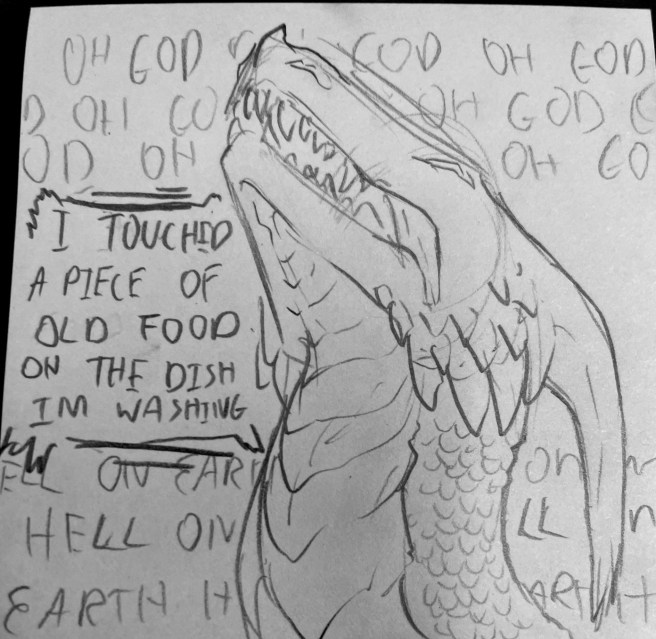 OH GOD GOD OH GOD
D OH GO OH GOD
OD OH OH GO
I TOUCHED
A PIECE OF
OLD FOOD
ON THE DISH
IM WASHING
ELL ON EARTH ON
HELL ON LL
EARTH H ARTH H